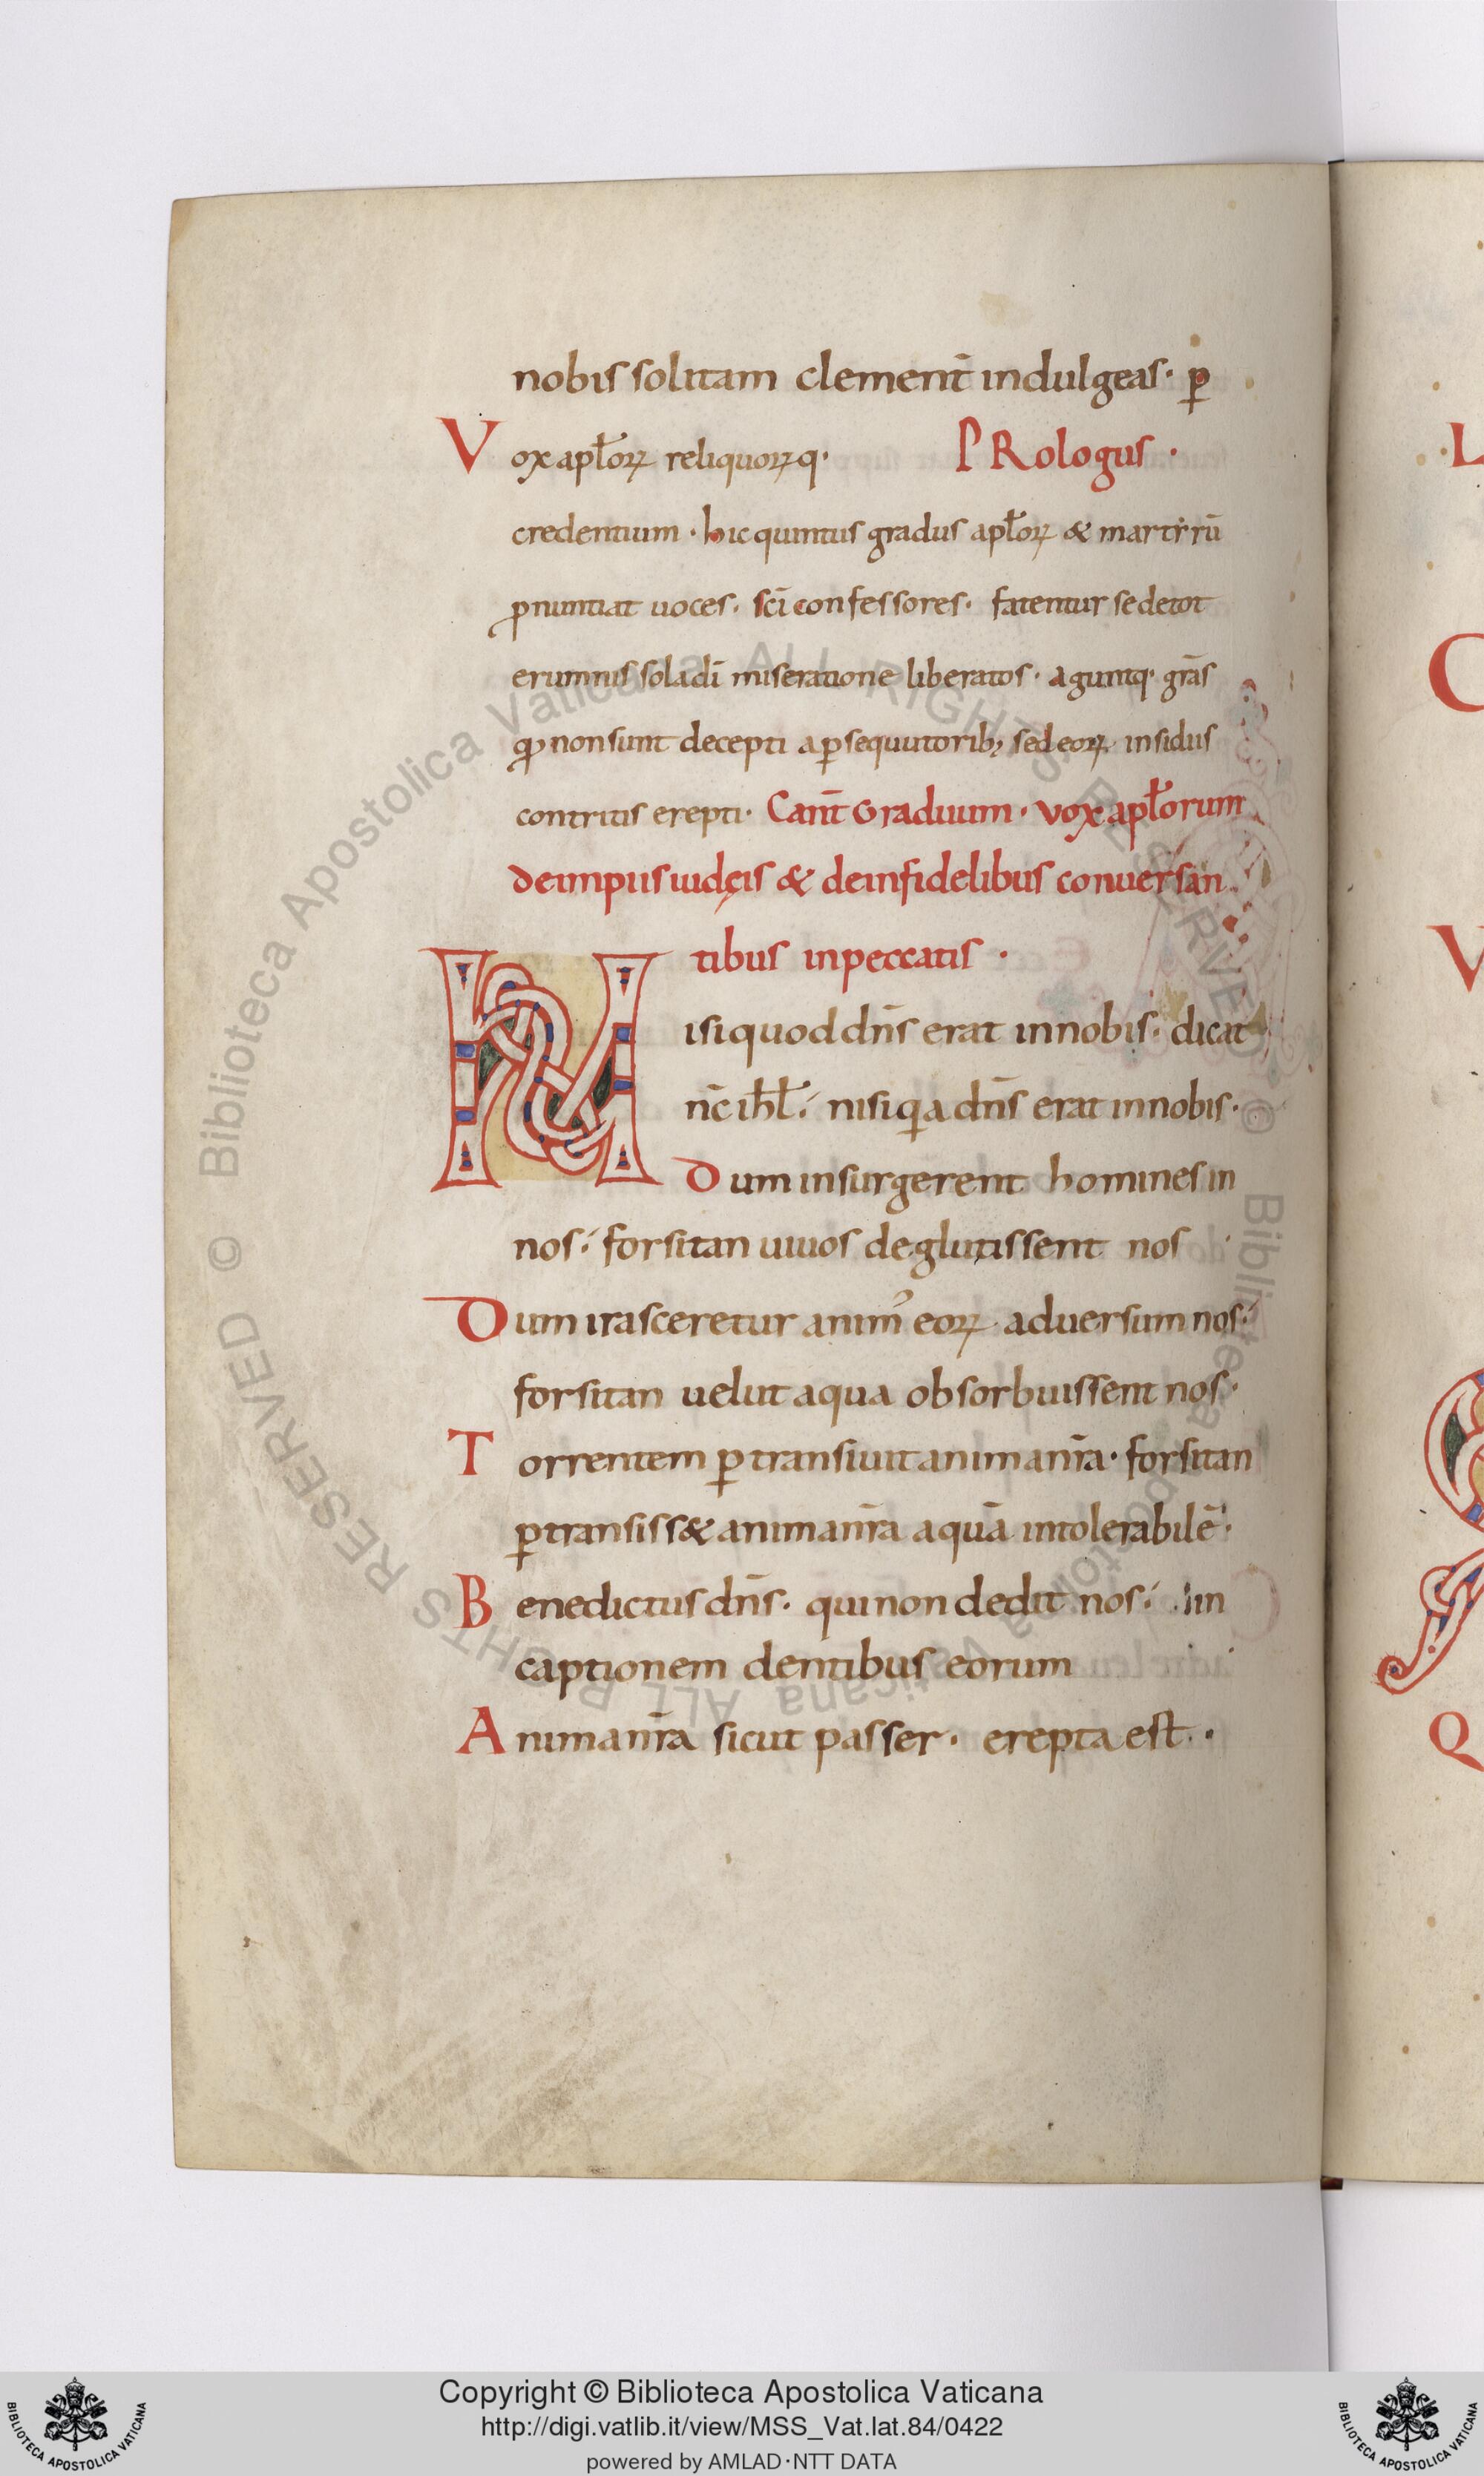 nobis solitam clement̄ indulgeas· ꝑ
Vox apłoꝝ reliquoꝝq·
PRologus ·
credentium · hic quintus gradus apłoꝝ & martẏrū
ꝓnuntiat uoces· sc̄i confessores· fatentur se de tot
erumnis sola dī miseratione liberatos· aguntq· grās
qđ non sunt decepti a ꝑsequutorib; sed eoꝝ insidiis
contritis erepti· Cant̄ Graduum· vox apłorum
de impiis iudęis & de infidelibus conuersan
tibus in peccatis ·
Nisi quod dn̄s erat in nobis· dicat
nc̄ ihł· nisi qa dn̄s erat in nobis·
Dum insurgerent homines in
nos· forsitan uiuos deglutissent nos
Dum irasceretur anim᾿ eoꝝ aduersum nos·
forsitan uelut aqua obsorbuissent nos·
Torrentem ꝑtransiuit anima nr̄a· forsitan
ꝑtransiss& anima nr̄a aquā intolerabilē·
Benedictus dn̄s· qui non dedit nos· in
captionem dentibus eorum
Anima nr̄a sicut passer· erepta est·
L
C
V
Q
© Biblioteca Apostolica Vaticana ALL RIGHTS RESERVED © Biblioteca Apostolica Vaticana ALL RIGHTS RESERVED
Copyright © Biblioteca Apostolica Vaticana
http://digi.vatlib.it/view/MSS_Vat.lat.84/0422
powered by AMLAD·NTT DATA
BIBLIOTECA APOSTOLICA VATICANA
BIBLIOTECA APOSTOLICA VATICANA